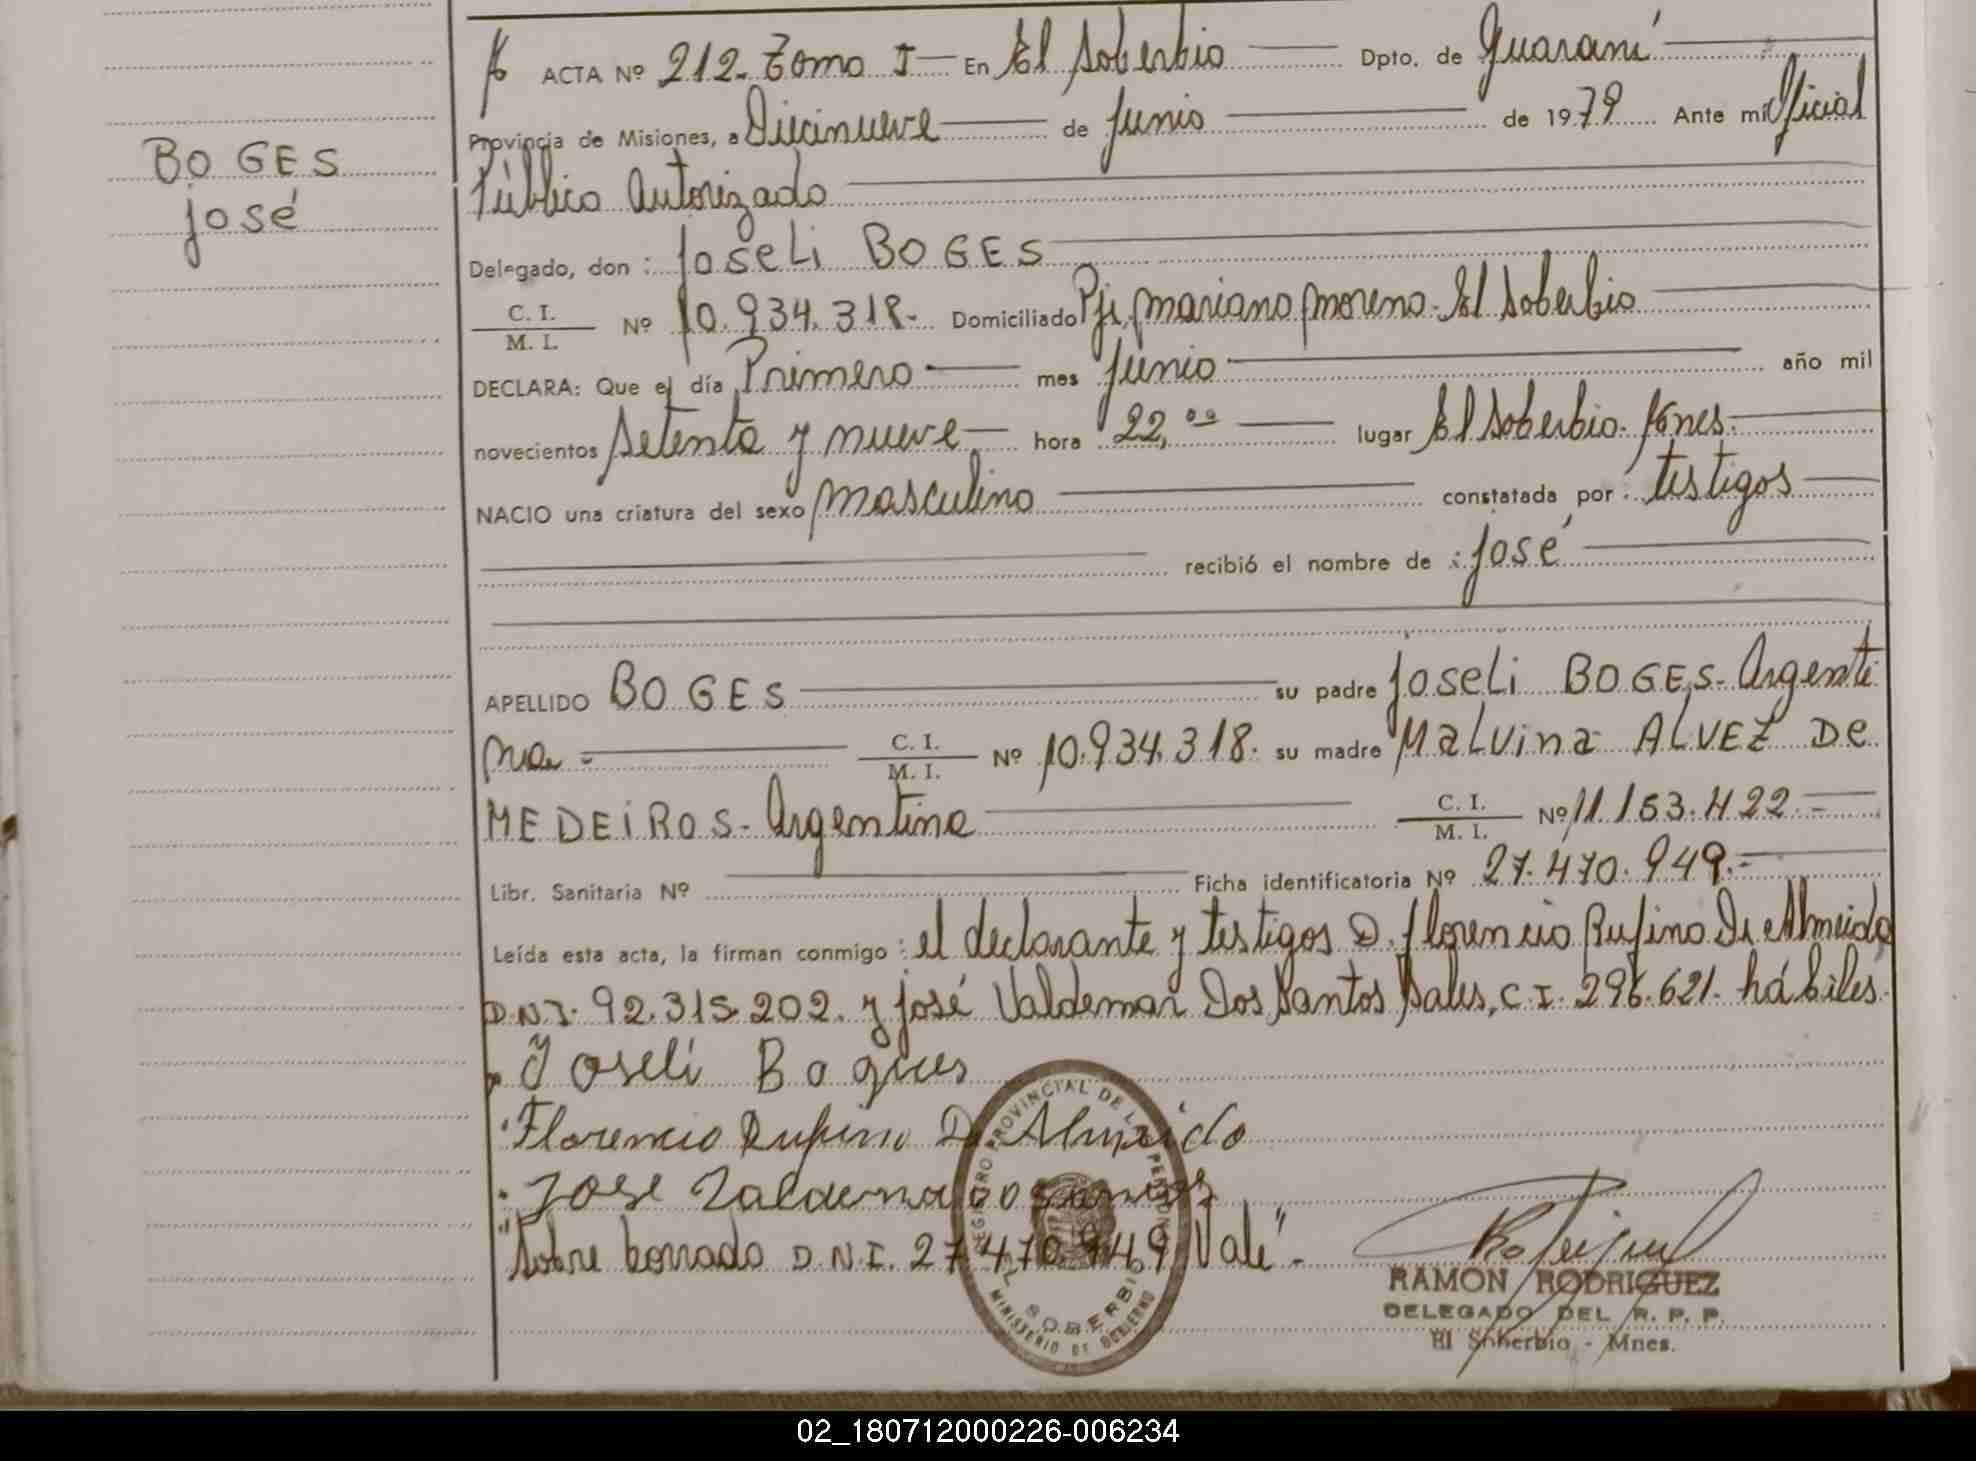 BOGES
José
ACTA Nº 212. Tomo I En El Soberbio Dpto. de Guaraní
Provincia de Misiones, a Diecinueve de Junio de 1979 Ante mi Oficial
Público Autorizado
Delegado, don: Joseli BOGES
C. I. / M. I. Nº 10.934.318. Domiciliado Pje. Mariano Moreno. El Soberbio
DECLARA: Que el día Primero mes Junio año mil
novecientos Setenta y nueve hora 22,00 lugar El Soberbio. Mnes.
NACIO una criatura del sexo masculino constatada por: testigos
recibió el nombre de: José
APELLIDO BOGES su padre Joseli BOGES. Argenti
na. C. I. / M. I. Nº 10.934.318. su madre Malvina ALVEZ De
MEDEiROS. Argentina C. I. / M. I. Nº 11.153.422.
Libr. Sanitaria Nº Ficha identificatoria Nº 27.470.949.
Leída esta acta, la firman conmigo: el declarante y testigos D. Florencio Rufino De Almeida
D.N.I. 92.315.202. y José Valdemar Dos Santos Sales, C.I. 296.621. hábiles.
Joseli Bogues
Florencio Rufino De Almeido
Jose Valdemar dos santos
"Sobre borrado D.N.I. 27.470.949 Vale".
REGISTRO PROVINCIAL DE LAS PERSONAS
EL SOBERBIO
MINISTERIO DE GOBIERNO
RAMON RODRIGUEZ
DELEGADO DEL R. P. P.
El Soberbio - Mnes.
02_180712000226-006234